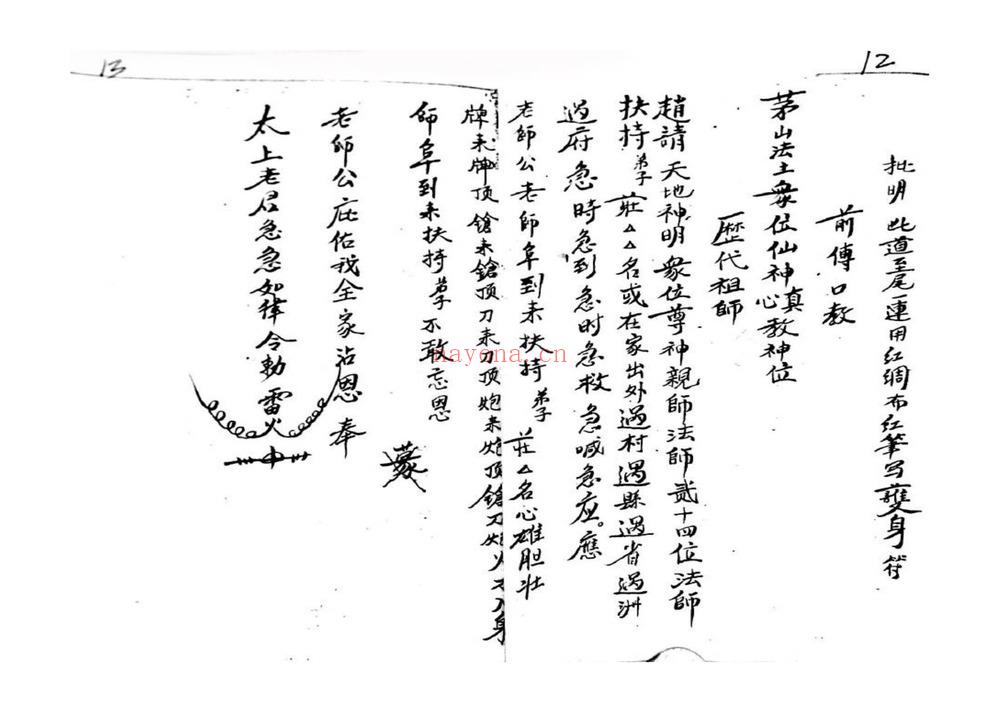 12
批明 此道至尾連用紅綢布紅筆写雙身符
前傳口教
茅山法主衆位仙神真心教神位
歷代祖師
趙請天地神明衆位尊神親師法師貳十四位法師
扶持弟子莊△△名或在家出外過村過縣過省過洲
過府急時急到急时急救急喊急应。應
老師公老師阜到来扶持弟子莊△名心雄胆壮
牌来牌顶鎗来鎗顶刀来刀顶炮来炮顶鎗刀炮火不入身
師阜到来扶持弟子不敢忘恩
老師公庇佑我全家沾恩奉
太上老君急急如律令勅雷火
13
nayona.cn